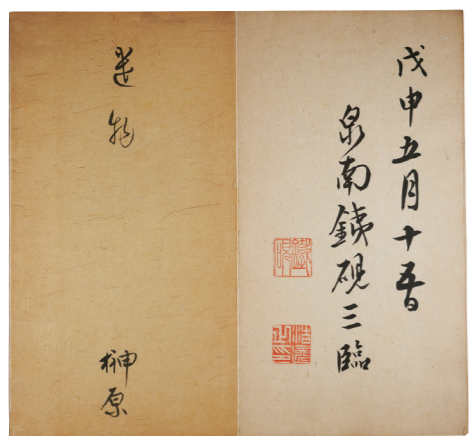 戊申五月十五日
泉南銕硯三臨
遺物
榊原